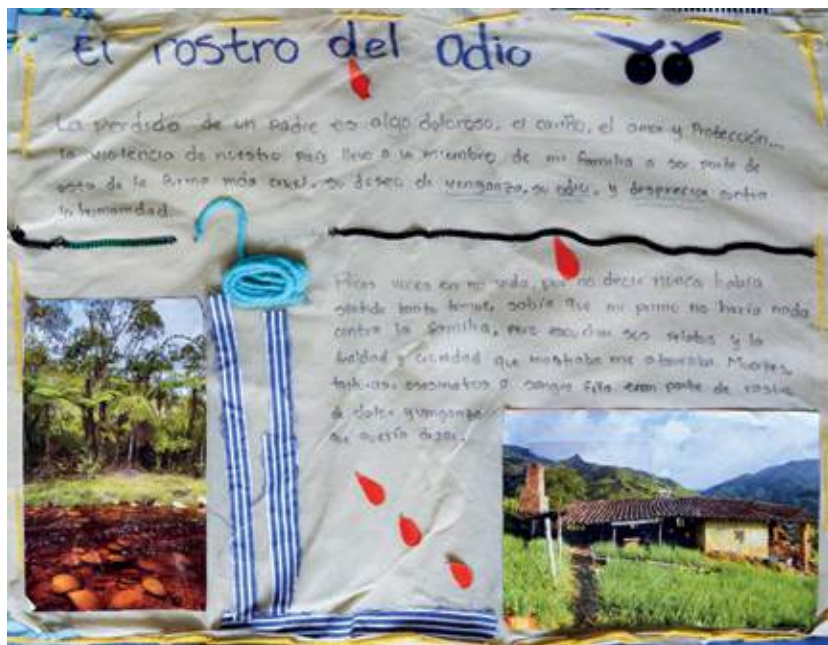 El rostro del odio
La perdida de un padre es algo doloroso, el cariño, el amor y Protección...
la violencia de nuestro país llevo a un miembro de mi familia a ser parte de
esta de la forma más cruel, su deseo de venganza, su odio, y desprecio contra
la humanidad.
Pocas veces en mi vida, por no decir nunca había
sentido tanto temor, sabía que mi primo no haría nada
contra la familia, pero escuchar sus relatos y la
maldad y crueldad que mostraba me aterraba. Muertes,
torturas, asesinatos a sangre fría eran parte de
de dolor y venganza
que quería dejar.